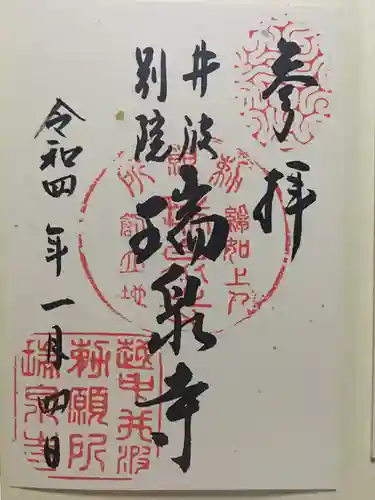 参拝
井波
別院
瑞泉寺
令和四年一月四日
綽如上人
越中井波
勅願所
瑞泉寺